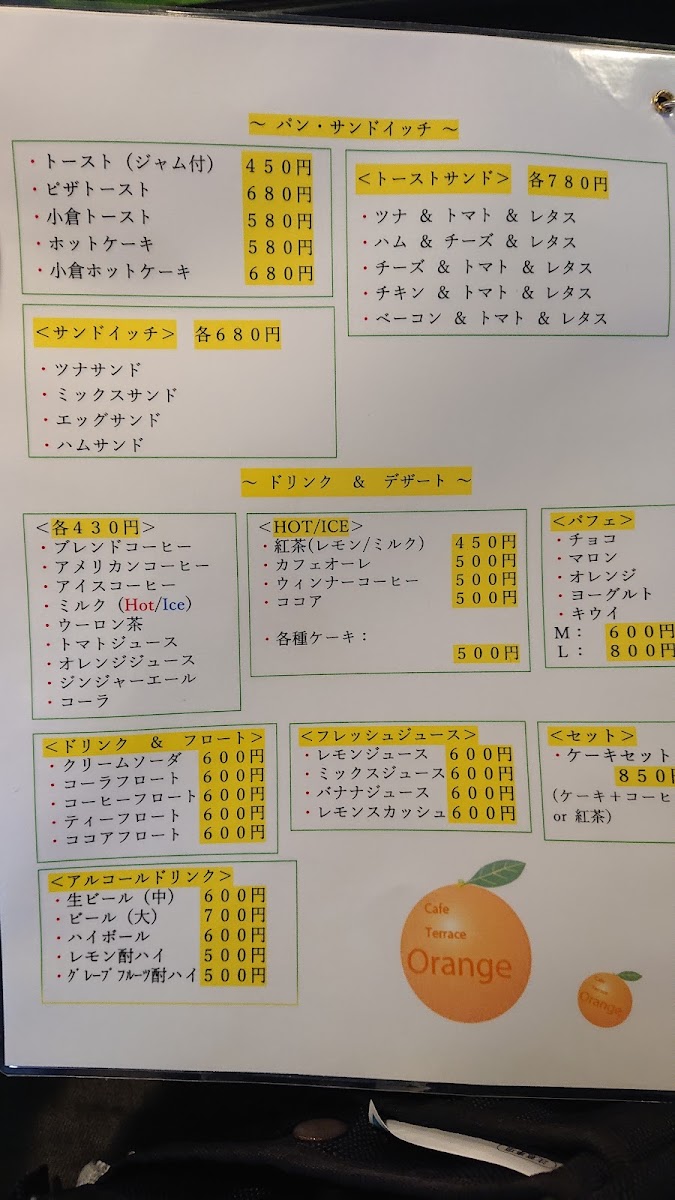 ～ パン・サンドイッチ ～
・トースト（ジャム付） ４５０円
・ピザトースト ６８０円
・小倉トースト ５８０円
・ホットケーキ ５８０円
・小倉ホットケーキ ６８０円
＜トーストサンド＞ 各７８０円
・ツナ ＆ トマト ＆ レタス
・ハム ＆ チーズ ＆ レタス
・チーズ ＆ トマト ＆ レタス
・チキン ＆ トマト ＆ レタス
・ベーコン ＆ トマト ＆ レタス
＜サンドイッチ＞ 各６８０円
・ツナサンド
・ミックスサンド
・エッグサンド
・ハムサンド
～ ドリンク ＆ デザート ～
＜各４３０円＞
・ブレンドコーヒー
・アメリカンコーヒー
・アイスコーヒー
・ミルク（Hot/Ice）
・ウーロン茶
・トマトジュース
・オレンジジュース
・ジンジャーエール
・コーラ
＜HOT/ICE＞
・紅茶(レモン/ミルク) ４５０円
・カフェオーレ ５００円
・ウィンナーコーヒー ５００円
・ココア ５００円
・各種ケーキ：
５００円
＜パフェ＞
・チョコ
・マロン
・オレンジ
・ヨーグルト
・キウイ
Ｍ： ６００円
Ｌ： ８００円
＜ドリンク ＆ フロート＞
・クリームソーダ ６００円
・コーラフロート ６００円
・コーヒーフロート ６００円
・ティーフロート ６００円
・ココアフロート ６００円
＜フレッシュジュース＞
・レモンジュース ６００円
・ミックスジュース ６００円
・バナナジュース ６００円
・レモンスカッシュ ６００円
＜セット＞
・ケーキセット
８５０円
(ケーキ＋コーヒ
or 紅茶)
＜アルコールドリンク＞
・生ビール（中） ６００円
・ビール（大） ７００円
・ハイボール ６００円
・レモン酎ハイ ５００円
・ｸﾞﾚｰﾌﾟﾌﾙｰﾂ酎ハイ ５００円
Cafe
Terrace
Orange
Cafe
Terrace
Orange